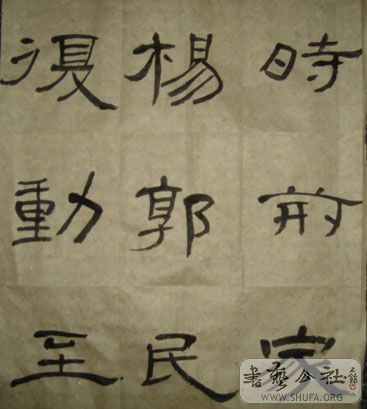 時前
楊郭民
復動至
書藝公社
WWW.SHUFA.ORG